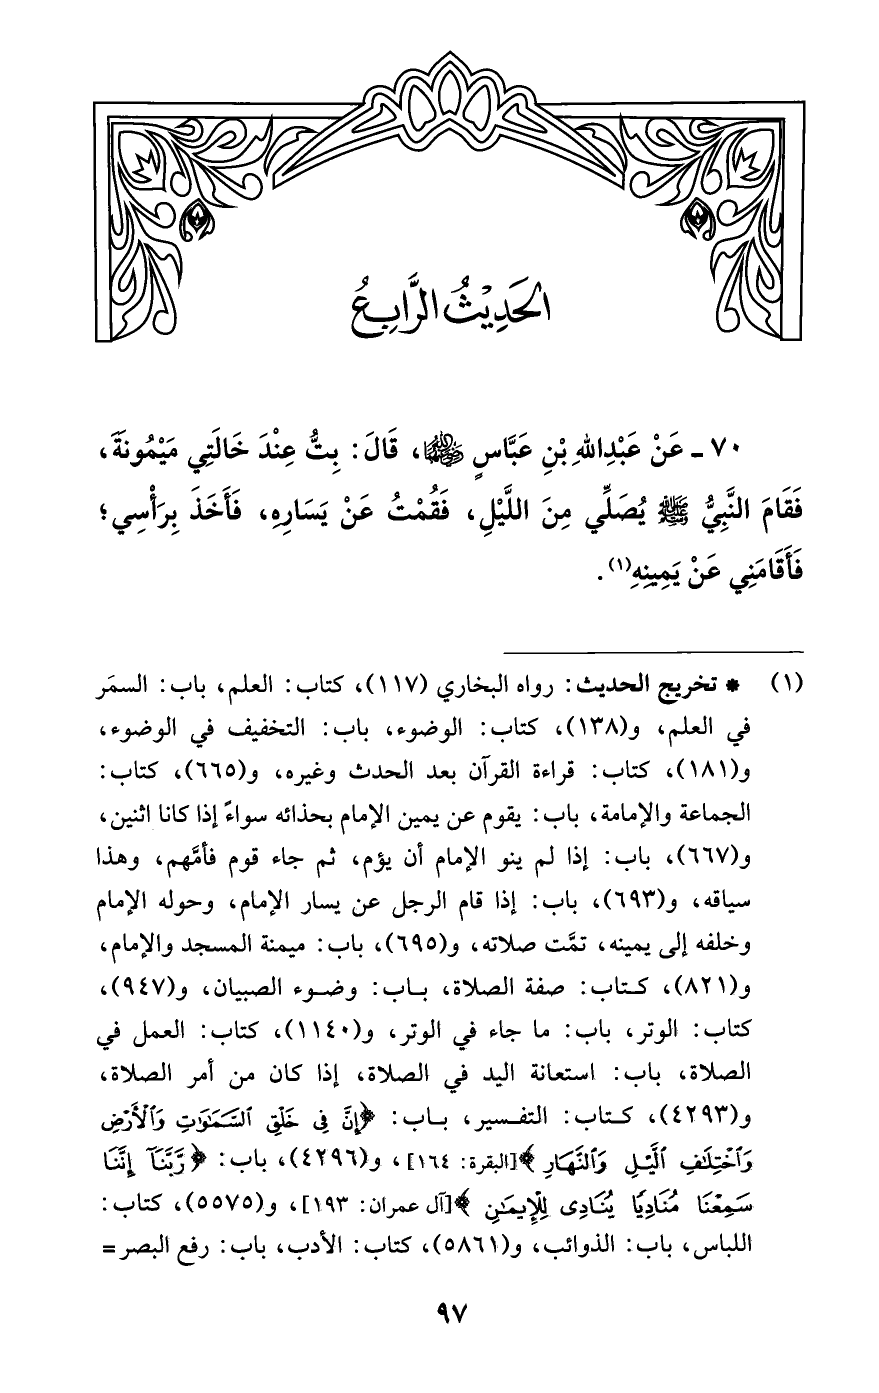 الحَدِيْثُ الرَّابِعُ
٧٠ ـ عَنْ عَبْدِاللهِ بْنِ عَبَّاسٍ ﵄، قَالَ: بِتُّ عِنْدَ خَالَتِي مَيْمُونَةَ،
فَقَامَ النَّبِيُّ ﷺ يُصَلِّي مِنَ اللَّيْلِ، فَقُمْتُ عَنْ يَسَارِهِ، فَأَخَذَ بِرَأْسِي؛
فَأَقَامَنِي عَنْ يَمِينِهِ(١).
(١) * تخريج الحديث: رواه البخاري (١١٧)، كتاب: العلم، باب: السمَر
في العلم، و(١٣٨)، كتاب: الوضوء، باب: التخفيف في الوضوء،
و(١٨١)، كتاب: قراءة القرآن بعد الحدث وغيره، و(٦٦٥)، كتاب:
الجماعة والإمامة، باب: يقوم عن يمين الإمام بحذائه سواءً إذا كانا اثنين،
و(٦٦٧)، باب: إذا لم ينو الإمام أن يؤم، ثم جاء قوم فأمَّهم، وهذا
سياقه، و(٦٩٣)، باب: إذا قام الرجل عن يسار الإمام، وحوله الإمام
وخلفه إلى يمينه، تمَّت صلاته، و(٦٩٥)، باب: ميمنة المسجد والإمام،
و(٨٢١)، كتاب: صفة الصلاة، باب: وضوء الصبيان، و(٩٤٧)،
كتاب: الوتر، باب: ما جاء في الوتر، و(١١٤٠)، كتاب: العمل في
الصلاة، باب: استعانة اليد في الصلاة، إذا كان من أمر الصلاة،
و(٤٢٩٣)، كتاب: التفسير، باب: ﴿إِنَّ فِي خَلْقِ ٱلسَّمَٰوَٰتِ وَٱلْأَرْضِ
وَٱخْتِلَٰفِ ٱلَّيْلِ وَٱلنَّهَارِ﴾[البقرة: ١٦٤]، و(٤٢٩٦)، باب: ﴿رَّبَّنَآ إِنَّنَا
سَمِعْنَا مُنَادِيًا يُنَادِى لِلْإِيمَٰنِ﴾[آل عمران: ١٩٣]، و(٥٥٧٥)، كتاب:
اللباس، باب: الذوائب، و(٥٨٦١)، كتاب: الأدب، باب: رفع البصر =
٩٧